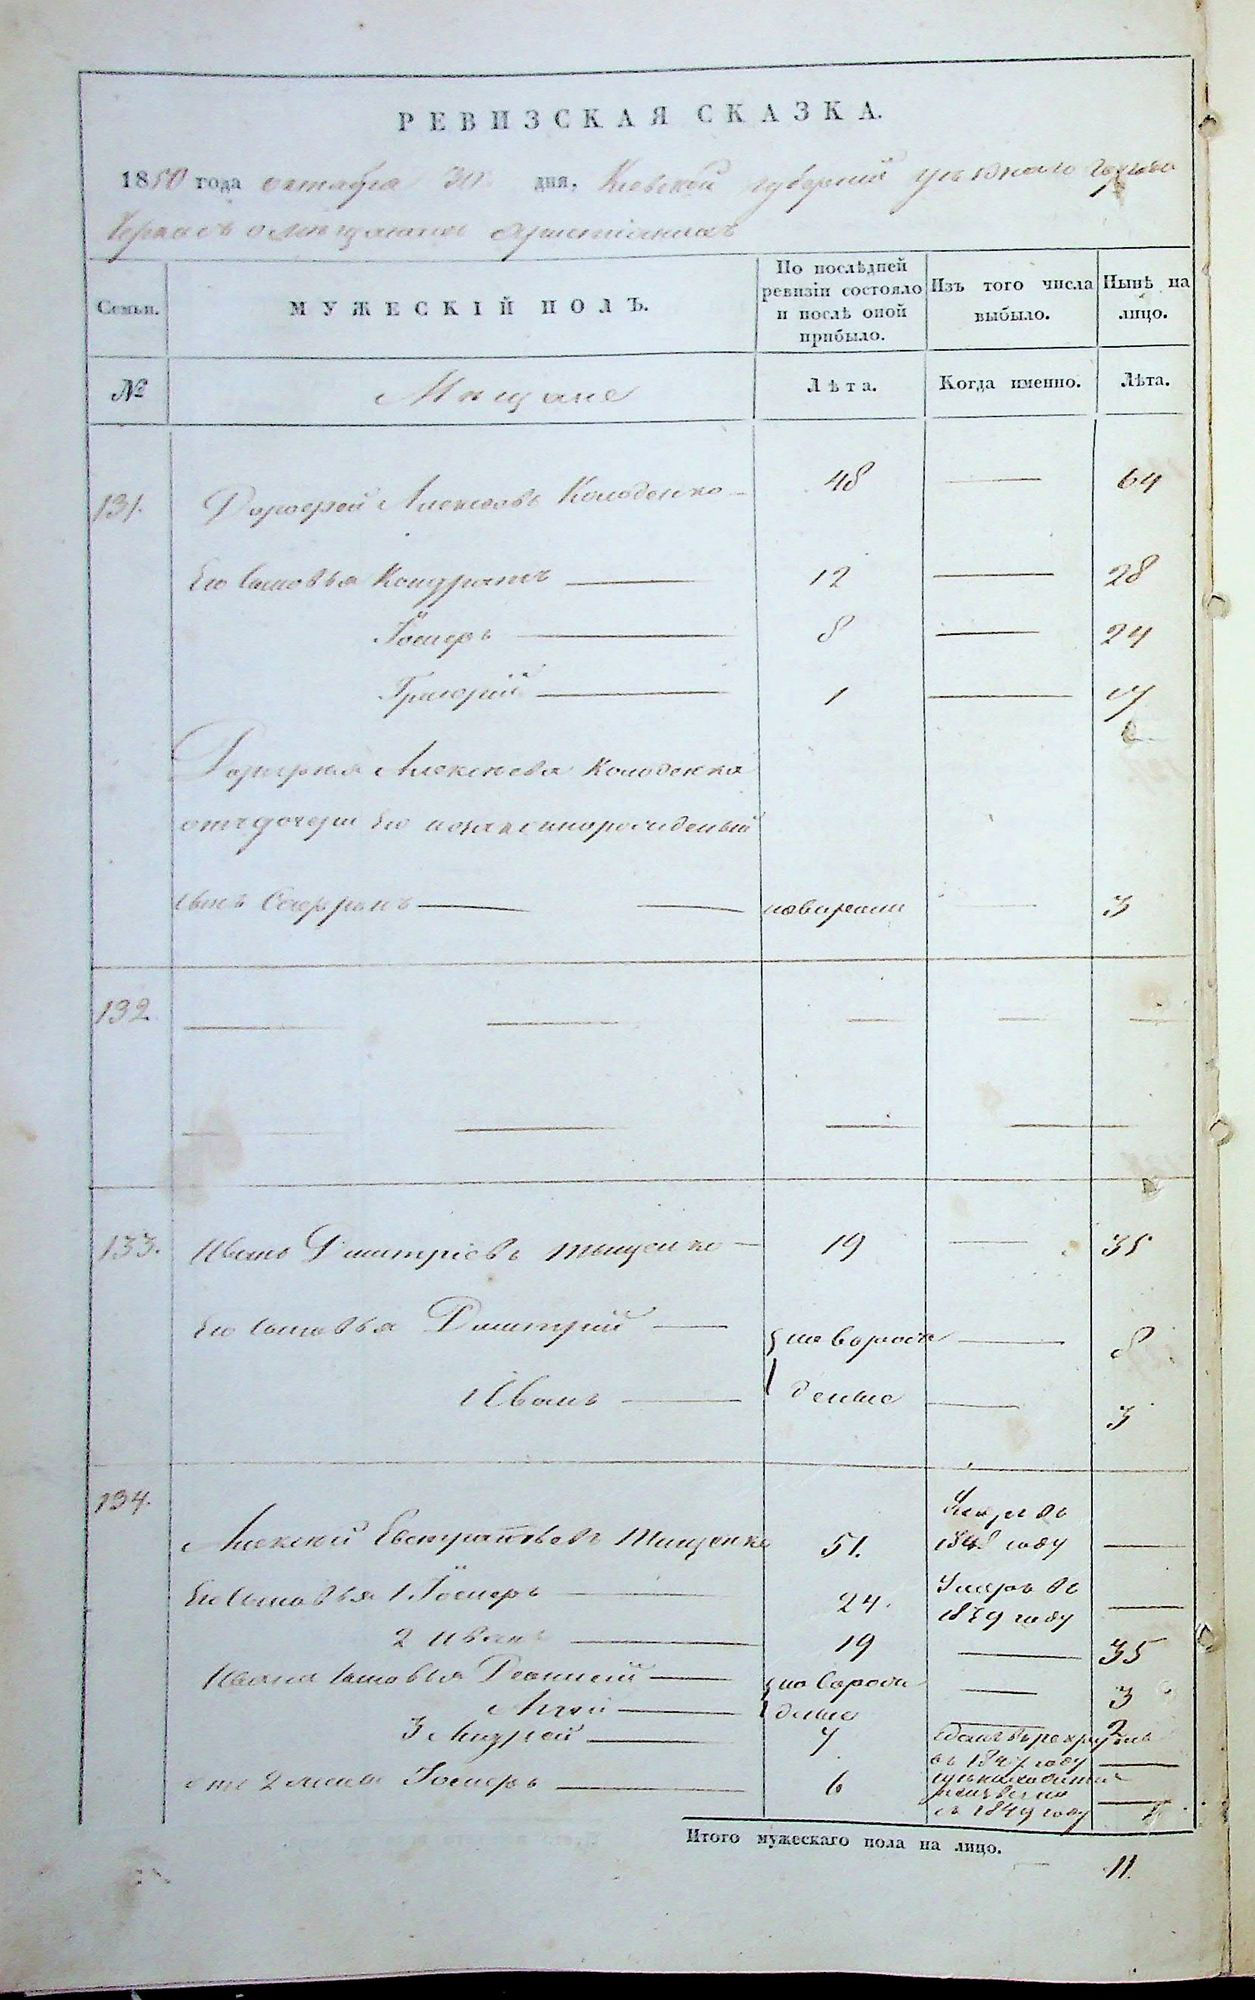 РЕВИЗСКАЯ СКАЗКА.
1850 года октября 30 дня, Киевской губернии уѣзднаго города
Черкасъ о мѣщанахъ христіанахъ
Семьи.
МУЖЕСКІЙ ПОЛЪ.
По послѣдней ревизіи состояло и послѣ оной прибыло.
Изъ того числа выбыло.
Нынѣ на лицо.
№
Мѣщане
Лѣта.
Когда именно.
Лѣта.
131. Алексѣевъ Колоденко 48 64
Его сыновья Кондратъ 12 28
Іосифъ 8 24
Григорій 1 17
Алексѣева Колоденка
отъ дочери его незаконнорожденый
сынъ Софронъ новорожд 3
132
133. Иванъ Дмитріевъ Тищенко 19 35
Его сыновья Димитрій новорож 8
Иванъ денные 3
134. Алексѣй Евстратьевъ Тищенко 51. Умеръ въ 1848 году
Его сыновья 1 Іосифъ 24. Умеръ въ 1839 году
2 Иванъ 19 35
Ивана сыновья новорож 3
денные 2
3 Андрей 7 въ 1847 году
отъ 2 жены Іосифъ 6
съ 1849 году
Итого мужескаго пола на лицо. 11.